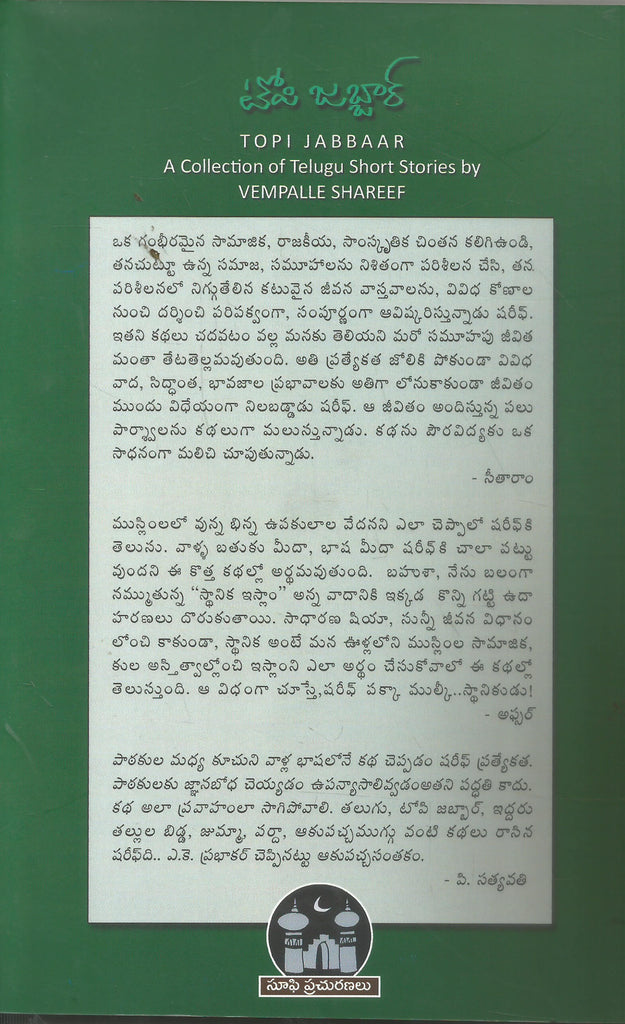 టోపి జబ్బార్
TOPI JABBAAR
A Collection of Telugu Short Stories by
VEMPALLE SHAREEF
ఒక గంభీరమైన సామాజిక, రాజకీయ, సాంస్కృతిక చింతన కలిగిఉండి,
తనచుట్టూ ఉన్న సమాజ, సమూహాలను నిశితంగా పరిశీలన చేసి, తన
పరిశీలనలో నిగ్గుతేలిన కటువైన జీవన వాస్తవాలను, వివిధ కోణాల
నుంచి దర్శించి పరిపక్వంగా, సంపూర్ణంగా ఆవిష్కరిస్తున్నాడు షరీఫ్.
ఇతని కథలు చదవటం వల్ల మనకు తెలియని మరో సమూహపు జీవిత
మంతా తేటతెల్లమవుతుంది. అతి ప్రత్యేకత జోలికి పోకుండా వివిధ
వాద, సిద్ధాంత, భావజాల ప్రభావాలకు అతిగా లోనుకాకుండా జీవితం
ముందు విధేయంగా నిలబడ్డాడు షరీఫ్. ఆ జీవితం అందిస్తున్న పలు
పార్శ్వాలను కథలుగా మలుస్తున్నాడు. కథను పౌరవిద్యకు ఒక
సాధనంగా మలిచి చూపుతున్నాడు.
- సీతారాం
ముస్లింలలో వున్న భిన్న ఉపకులాల వేదనని ఎలా చెప్పాలో షరీఫ్‌కి
తెలుసు. వాళ్ళ బతుకు మీదా, భాష మీదా షరీఫ్‌కి చాలా పట్టు
వుందని ఈ కొత్త కథల్లో అర్థమవుతుంది. బహుశా, నేను బలంగా
నమ్ముతున్న "స్థానిక ఇస్లాం" అన్న వాదానికి ఇక్కడ కొన్ని గట్టి ఉదా
హరణలు దొరుకుతాయి. సాధారణ షియా, సున్నీ జీవన విధానం
లోంచి కాకుండా, స్థానిక అంటే మన ఊళ్లలోని ముస్లింల సామాజిక,
కుల అస్తిత్వాల్లోంచి ఇస్లాంని ఎలా అర్థం చేసుకోవాలో ఈ కథల్లో
తెలుస్తుంది. ఆ విధంగా చూస్తే,షరీఫ్ పక్కా ముల్కీ..స్థానికుడు!
- అఫ్సర్
పాఠకుల మధ్య కూచుని వాళ్ల భాషలోనే కథ చెప్పడం షరీఫ్ ప్రత్యేకత.
పాఠకులకు జ్ఞానబోధ చెయ్యడం ఉపన్యాసాలివ్వడంఅతని పద్ధతి కాదు.
కథ అలా ప్రవాహంలా సాగిపోవాలి. తలుగు, టోపి జబ్బార్, ఇద్దరు
తల్లుల బిడ్డ, జుమ్మా, పర్దా, ఆకుపచ్చముగ్గు వంటి కథలు రాసిన
షరీఫ్‌ది.. ఎ.కె. ప్రభాకర్ చెప్పినట్టు ఆకుపచ్చసంతకం.
- పి. సత్యవతి
సూఫి ప్రచురణలు